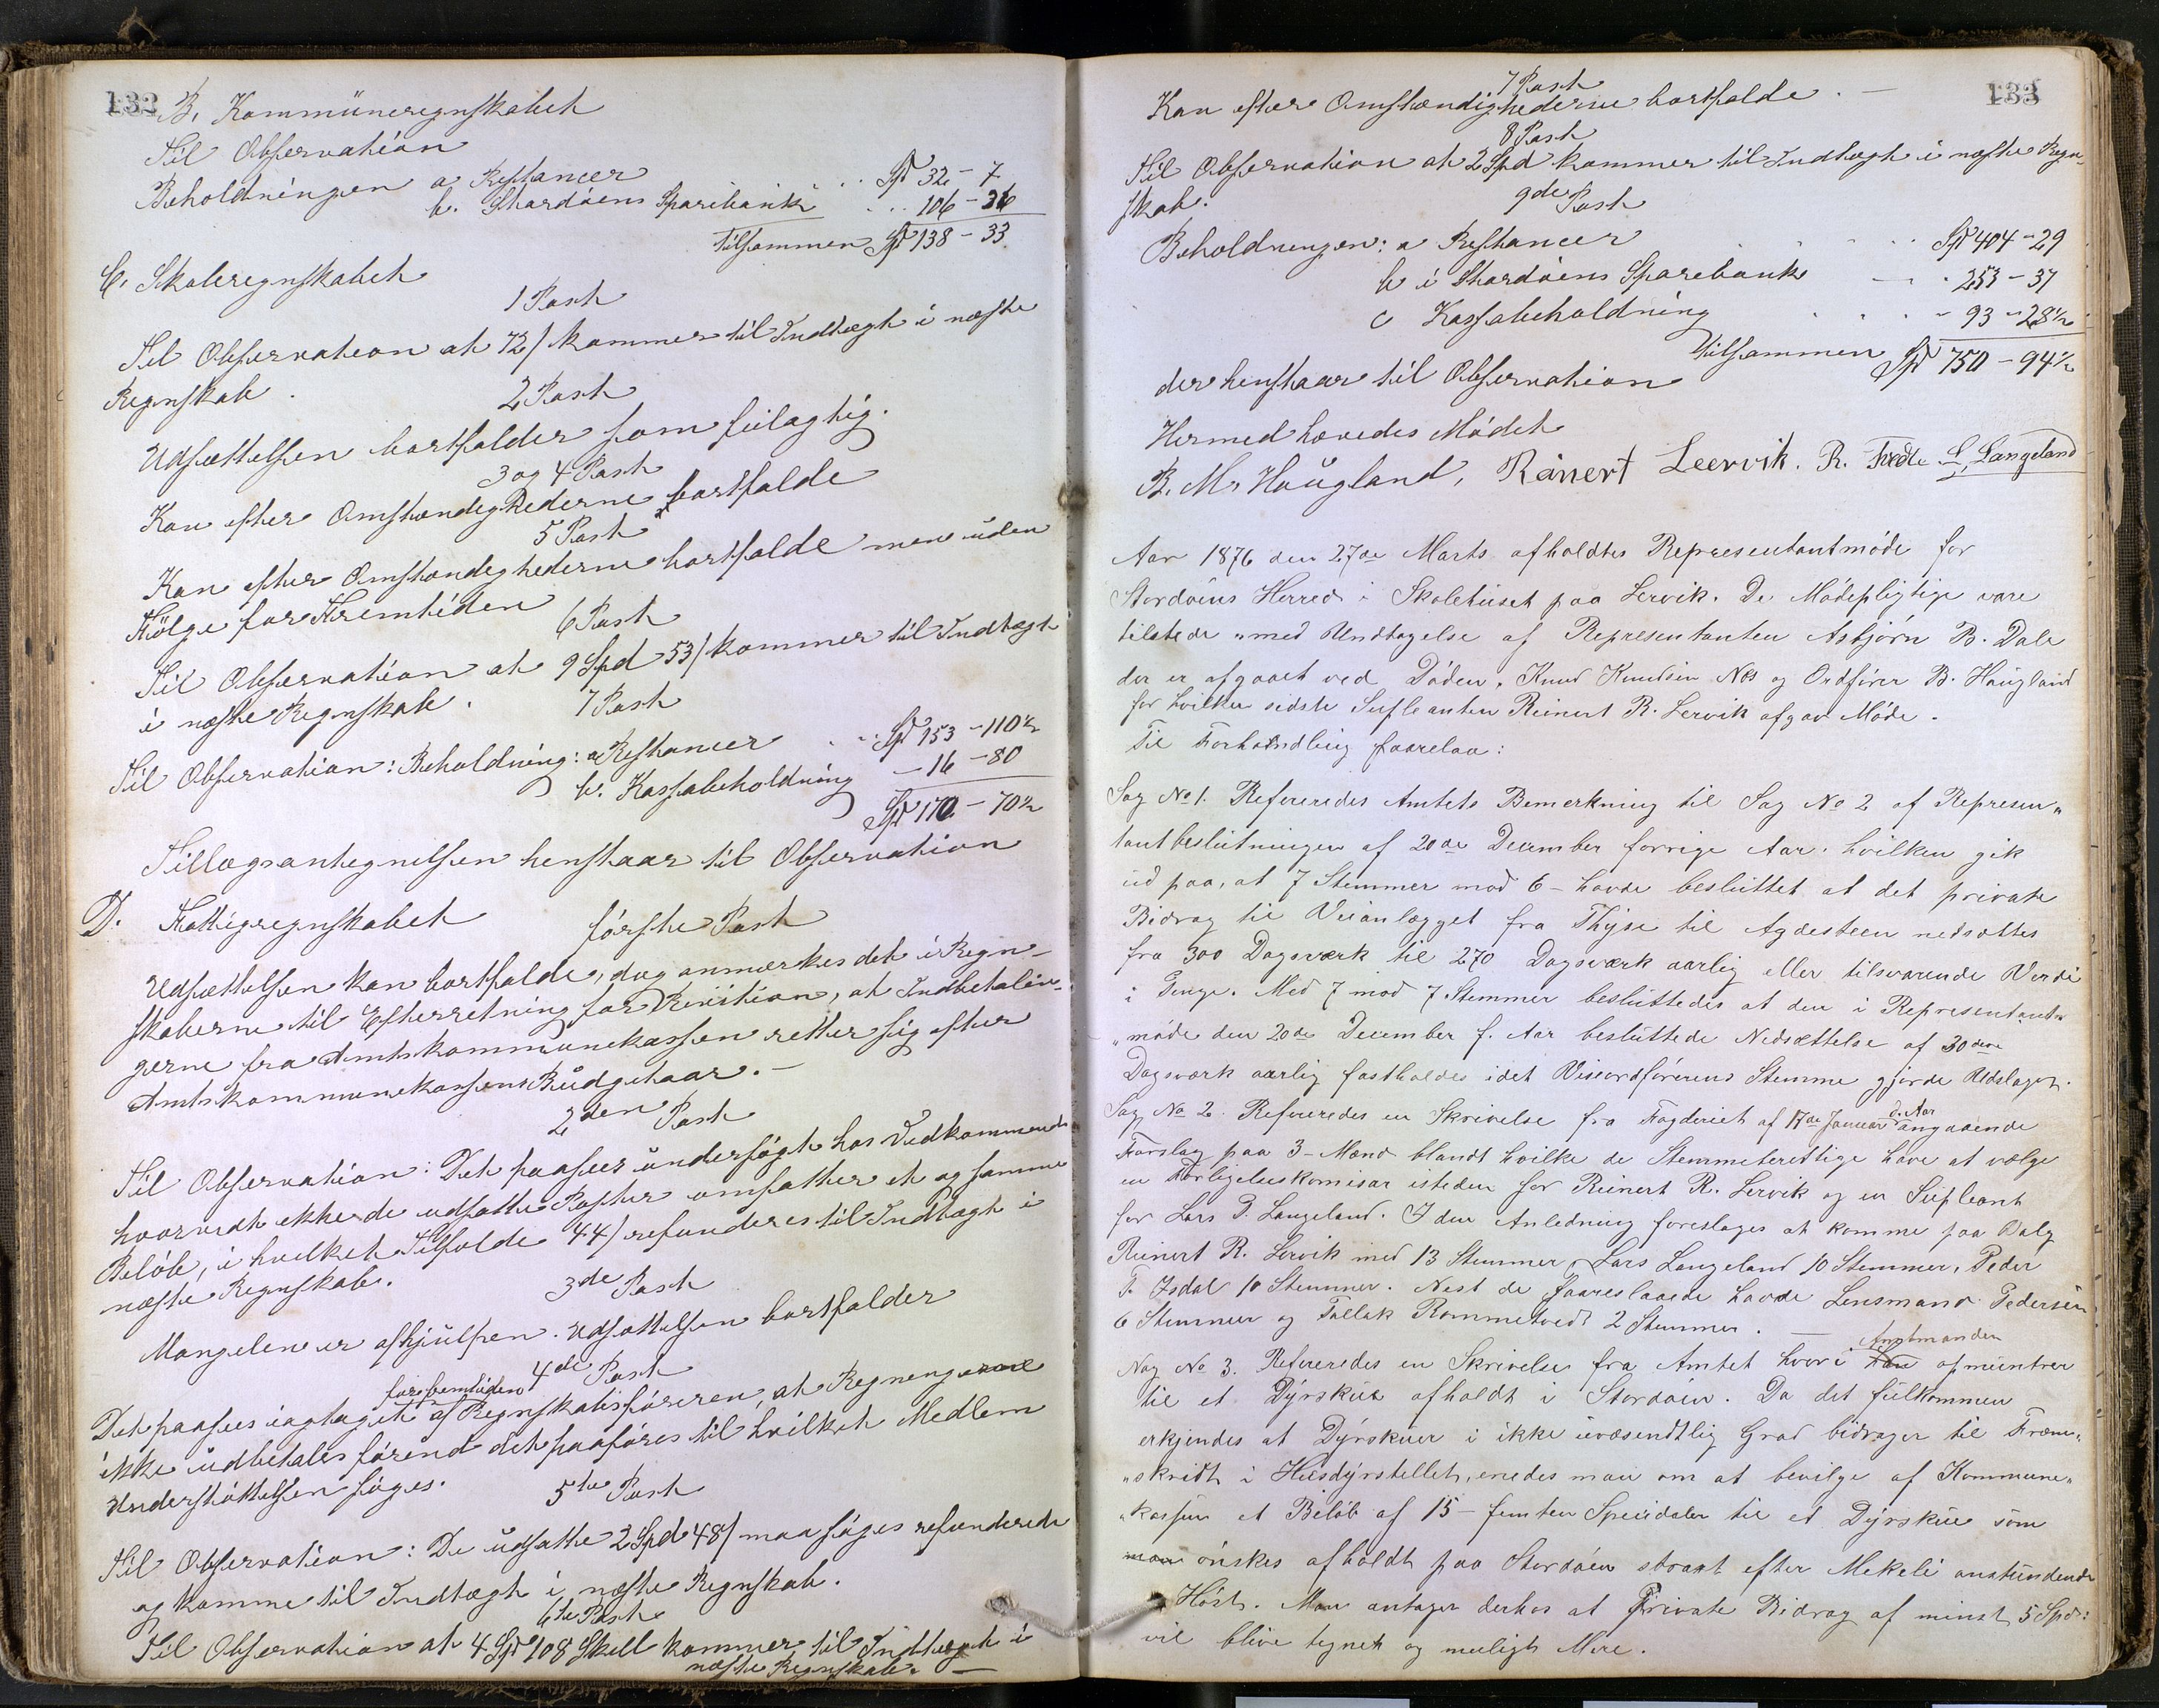 132
B, Kommüneregnskabet
Til Observation
Beholdningen a Restancer . . Sp 32 - 7
b. Stordøens Sparebank . . 106 - 26
Tilsammen Sp 138 - 33
C, Skoleregnskabet
1 Post
Til Observation at 72/ kommer til Indtægt i næste
Regnskab.
2 Post
Udsættelsen bortfalder som feilagtig.
3 og 4 Post
Kan efter Omstændighederne bortfalde
5 Post
Kan efter Omstændighederne bortfalde men uden
Følge for Fremtiden
6 Post
Til Observation at 9 Spd 53/ kommer til Indtægt
i næste Regnskab.
7 Post
Til Observation: Beholdning: a Restancer . . Sp 153 - 110½
b. Kassabeholdning - 16 - 80
Sp 170 - 70½
Tillægsantegnelsen henstaar til Observation
D. Fattigregnskabet
første Post
Udsættelsen kan bortfalde, dog anmærkes det i Regn-
skaberne til Efterretning for Revision, at Indbetalin-
gerne fra Amtskommunekassen retter sig efter
Amtskommunekassens Budgetaar. -
2den Post
Til Observation: Det paasees undersøgt hos Vedkommende
hvorvidt ikke de udsatte Poster omfatter et og samme
Beløb, i hvilket Tilfælde 44/ refunderes til Indtægt i
næste Regnskab.
3de Post
Mangelen er afhjulpen. Udsættelsen bortfalder
4de Post
for fremtiden
Det paasees iagtaget af Regnskabsføreren, at Regningerne
ikke udbetales førend det paaføres til hvilket Medlem
Understøttelsen søges.
5te Post
Til Observation: De udsatte 2 Spd 48/ maa søges refunderede
og komme til Indtægt i næste Regnskab.
6te Post
Til Observation at 4 Sp 108 Skill kommer til Indtægt i
næste Regnskab. -
133
7 Post
Kan efter Omstændighederne bortfalde. -
8 Post
Til Observation at 2 Spd kommer til Indtægt i næste Regn-
skab.
9de Post
Beholdningen: a Restancer Sp 404 - 29
b i Stordøens Sparebank - 253 - 37
c Kassabeholdning - 93 - 28½
Tilsammen Sp 750 - 94½
der henstaar til Observation
Hermed hævedes Mødet
B. M. Haugland, Rånert Leervik. R. Træde L. Langeland
Aar 1876 den 27de Marts afholdtes Representantmøde for
Stordøens Herred i Skolehuset paa Lervik. De Mødepligtige vare
tilstede med Undtagelse af Representanten Asbjørn B. Dale
der er afgaaet ved Døden, Knud Knudsen Næs og Ordfører B. Haugland
for hvilken sidste Supleanten Reinert R. Lervik afgav Møde.
Til Forhandling forelaa:
Sag No 1. Refereredes Amtets Bemerkning til Sag No 2 af Represen„
tantbeslutningen af 20de December forrige Aar. hvilken gik
ud paa, at 7 Stemmer mod 6 - havde besluttet at det private
Bidrag til Veianlægget fra Thyse til Agdesteen nedsættes
fra 300 Dagsværk til 270 Dagsværk aarlig eller tilsvarende Verdi
i Penge. Med 7 mod 7 Stemmer besluttedes at den i Representant„
„møde den 20de December f. Aar besluttede Nedsættelse af 30dere
Dagsværk aarlig fastholdes idet Viseordførerens Stemme gjorde Udslaget.
Sag No 2. Refereredes en Skrivelse fra Fogderiet af 17de Januar d. Aar angaaende
Forslag paa 3 - Mænd blandt hvilke de Stemmeberettige have at vælge
en Forligelseskomisær isteden for Reinert R. Lervik og en Supleant
for Lars P. Langeland. I den Anledning foreslages at komme paa Valg
Reinert R. Lervik med 13 Stemmer, Lars Langeland 10 Stemmer, Peder
T. Isdal 10 Stemmer. Nest de foreslaaede havde Lensmand Pedersen
6 Stemmer og Tollak Rommetvedt 2 Stemmer. -
Sag No 3. Refereredes en Skrivelse fra Amtet hvori Amtmanden opmuntrer
til et Dyrskue afholdt i Stordøen. Da det fulkommen
erkjendes at Dyrskuer i ikke uvæsendtlig Grad bidrager til Frem„
„skridt i Husdyrstellet, enedes man om at bevilge af Kommune„
„kassen et Beløb af 15 - femten Speeidaler til et Dyrskue som
man ønskes afholdt paa Stordøen strax efter Mekeli anstundende
Høst. Man antager derhos at Private Bidrag af minst 5 Spd:
vil blive tegnet og muligt Mere.